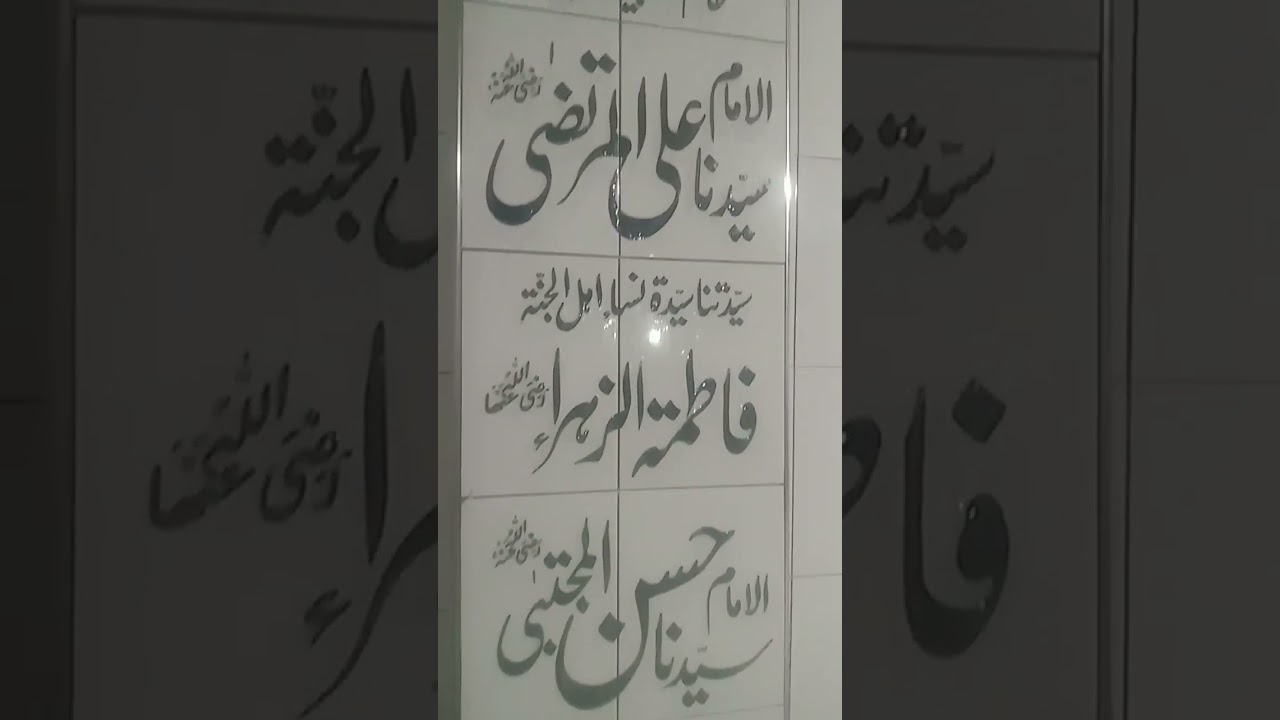 سیّدنا الامام علی المرتضیٰ رضی اللہ عنہ
سیّدتنا سیّدۃ نساء اہل الجنّۃ
فاطمۃ الزہراء رضی اللہ عنہا
سیّدنا الامام حسن المجتبیٰ رضی اللہ عنہ